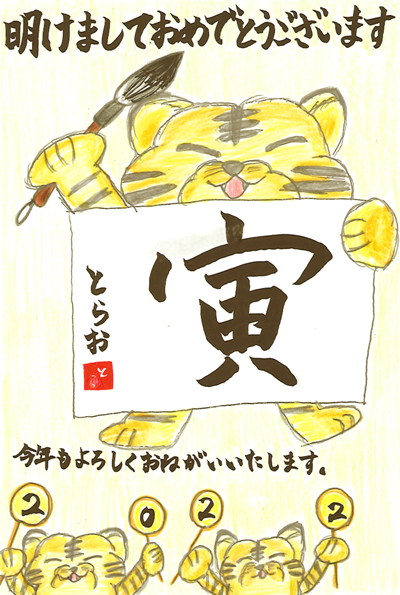 明けましておめでとうございます
寅
とらお
と
今年もよろしくおねがいいたします。
2022